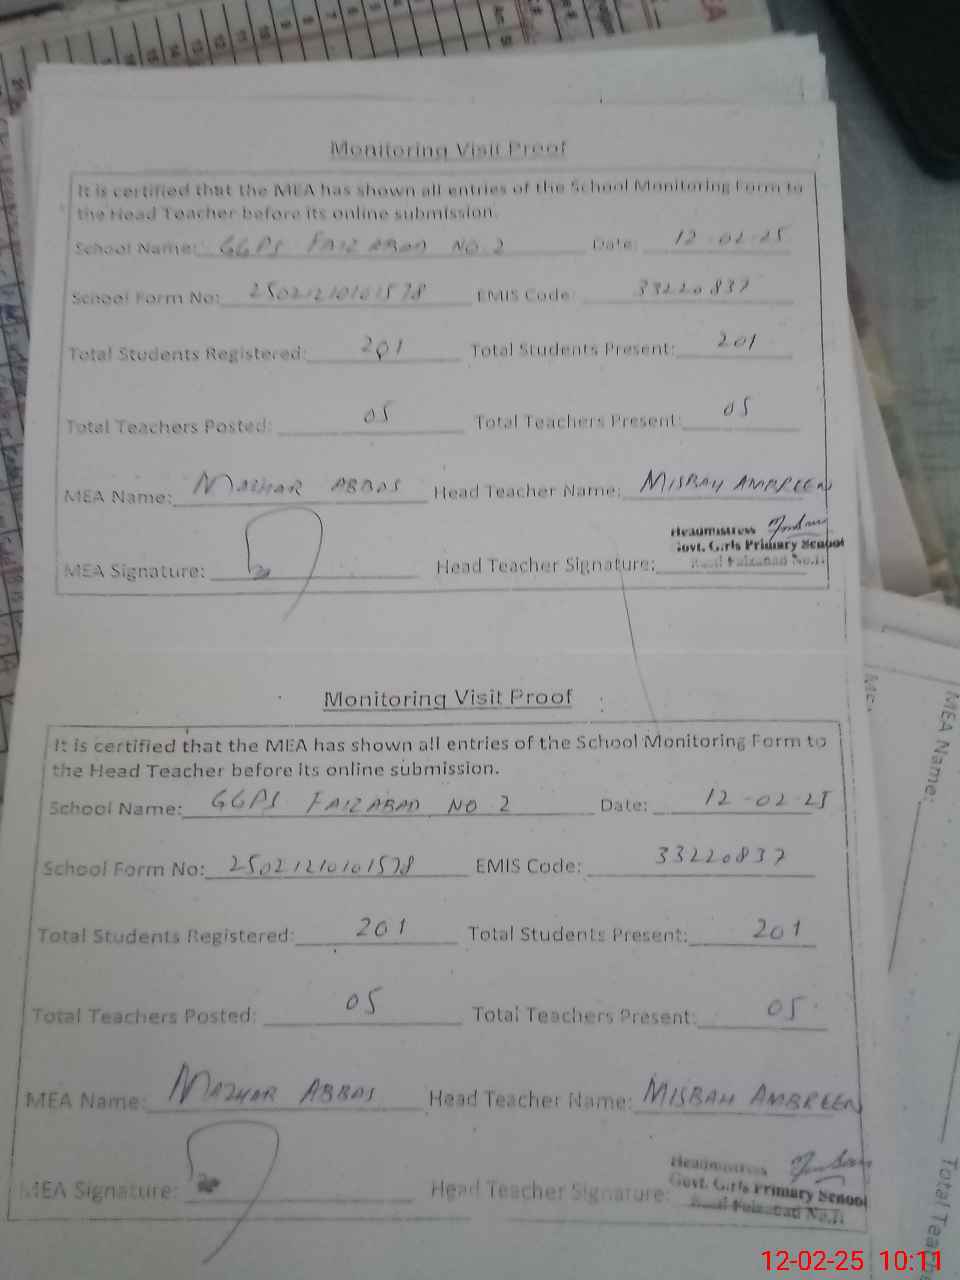 Monitoring Visit Proof
It is certified that the MEA has shown all entries of the School Monitoring Form to
the Head Teacher before its online submission.
School Name: GGPS FAIZABAD NO. 2 Date: 12-02-25
School Form No: 25021210101578 EMIS Code: 33220837
Total Students Registered: 201 Total Students Present: 201
Total Teachers Posted: 05 Total Teachers Present: 05
MEA Name: MAZHAR ABBAS Head Teacher Name: MISBAH AMBREEN
Headmistress
Govt. Girls Primary School
Faizabad No.II
MEA Signature: Head Teacher Signature:
Monitoring Visit Proof
It is certified that the MEA has shown all entries of the School Monitoring Form to
the Head Teacher before its online submission.
School Name: GGPS FAIZABAD NO 2 Date: 12-02-25
School Form No: 25021210101578 EMIS Code: 33220837
Total Students Registered: 201 Total Students Present: 201
Total Teachers Posted: 05 Total Teachers Present: 05
MEA Name: MAZHAR ABBAS Head Teacher Name: MISBAH AMBREEN
Headmistress
Govt. Girls Primary School
Faizabad No.II
MEA Signature: Head Teacher Signature:
MEA Name:
12-02-25 10:11